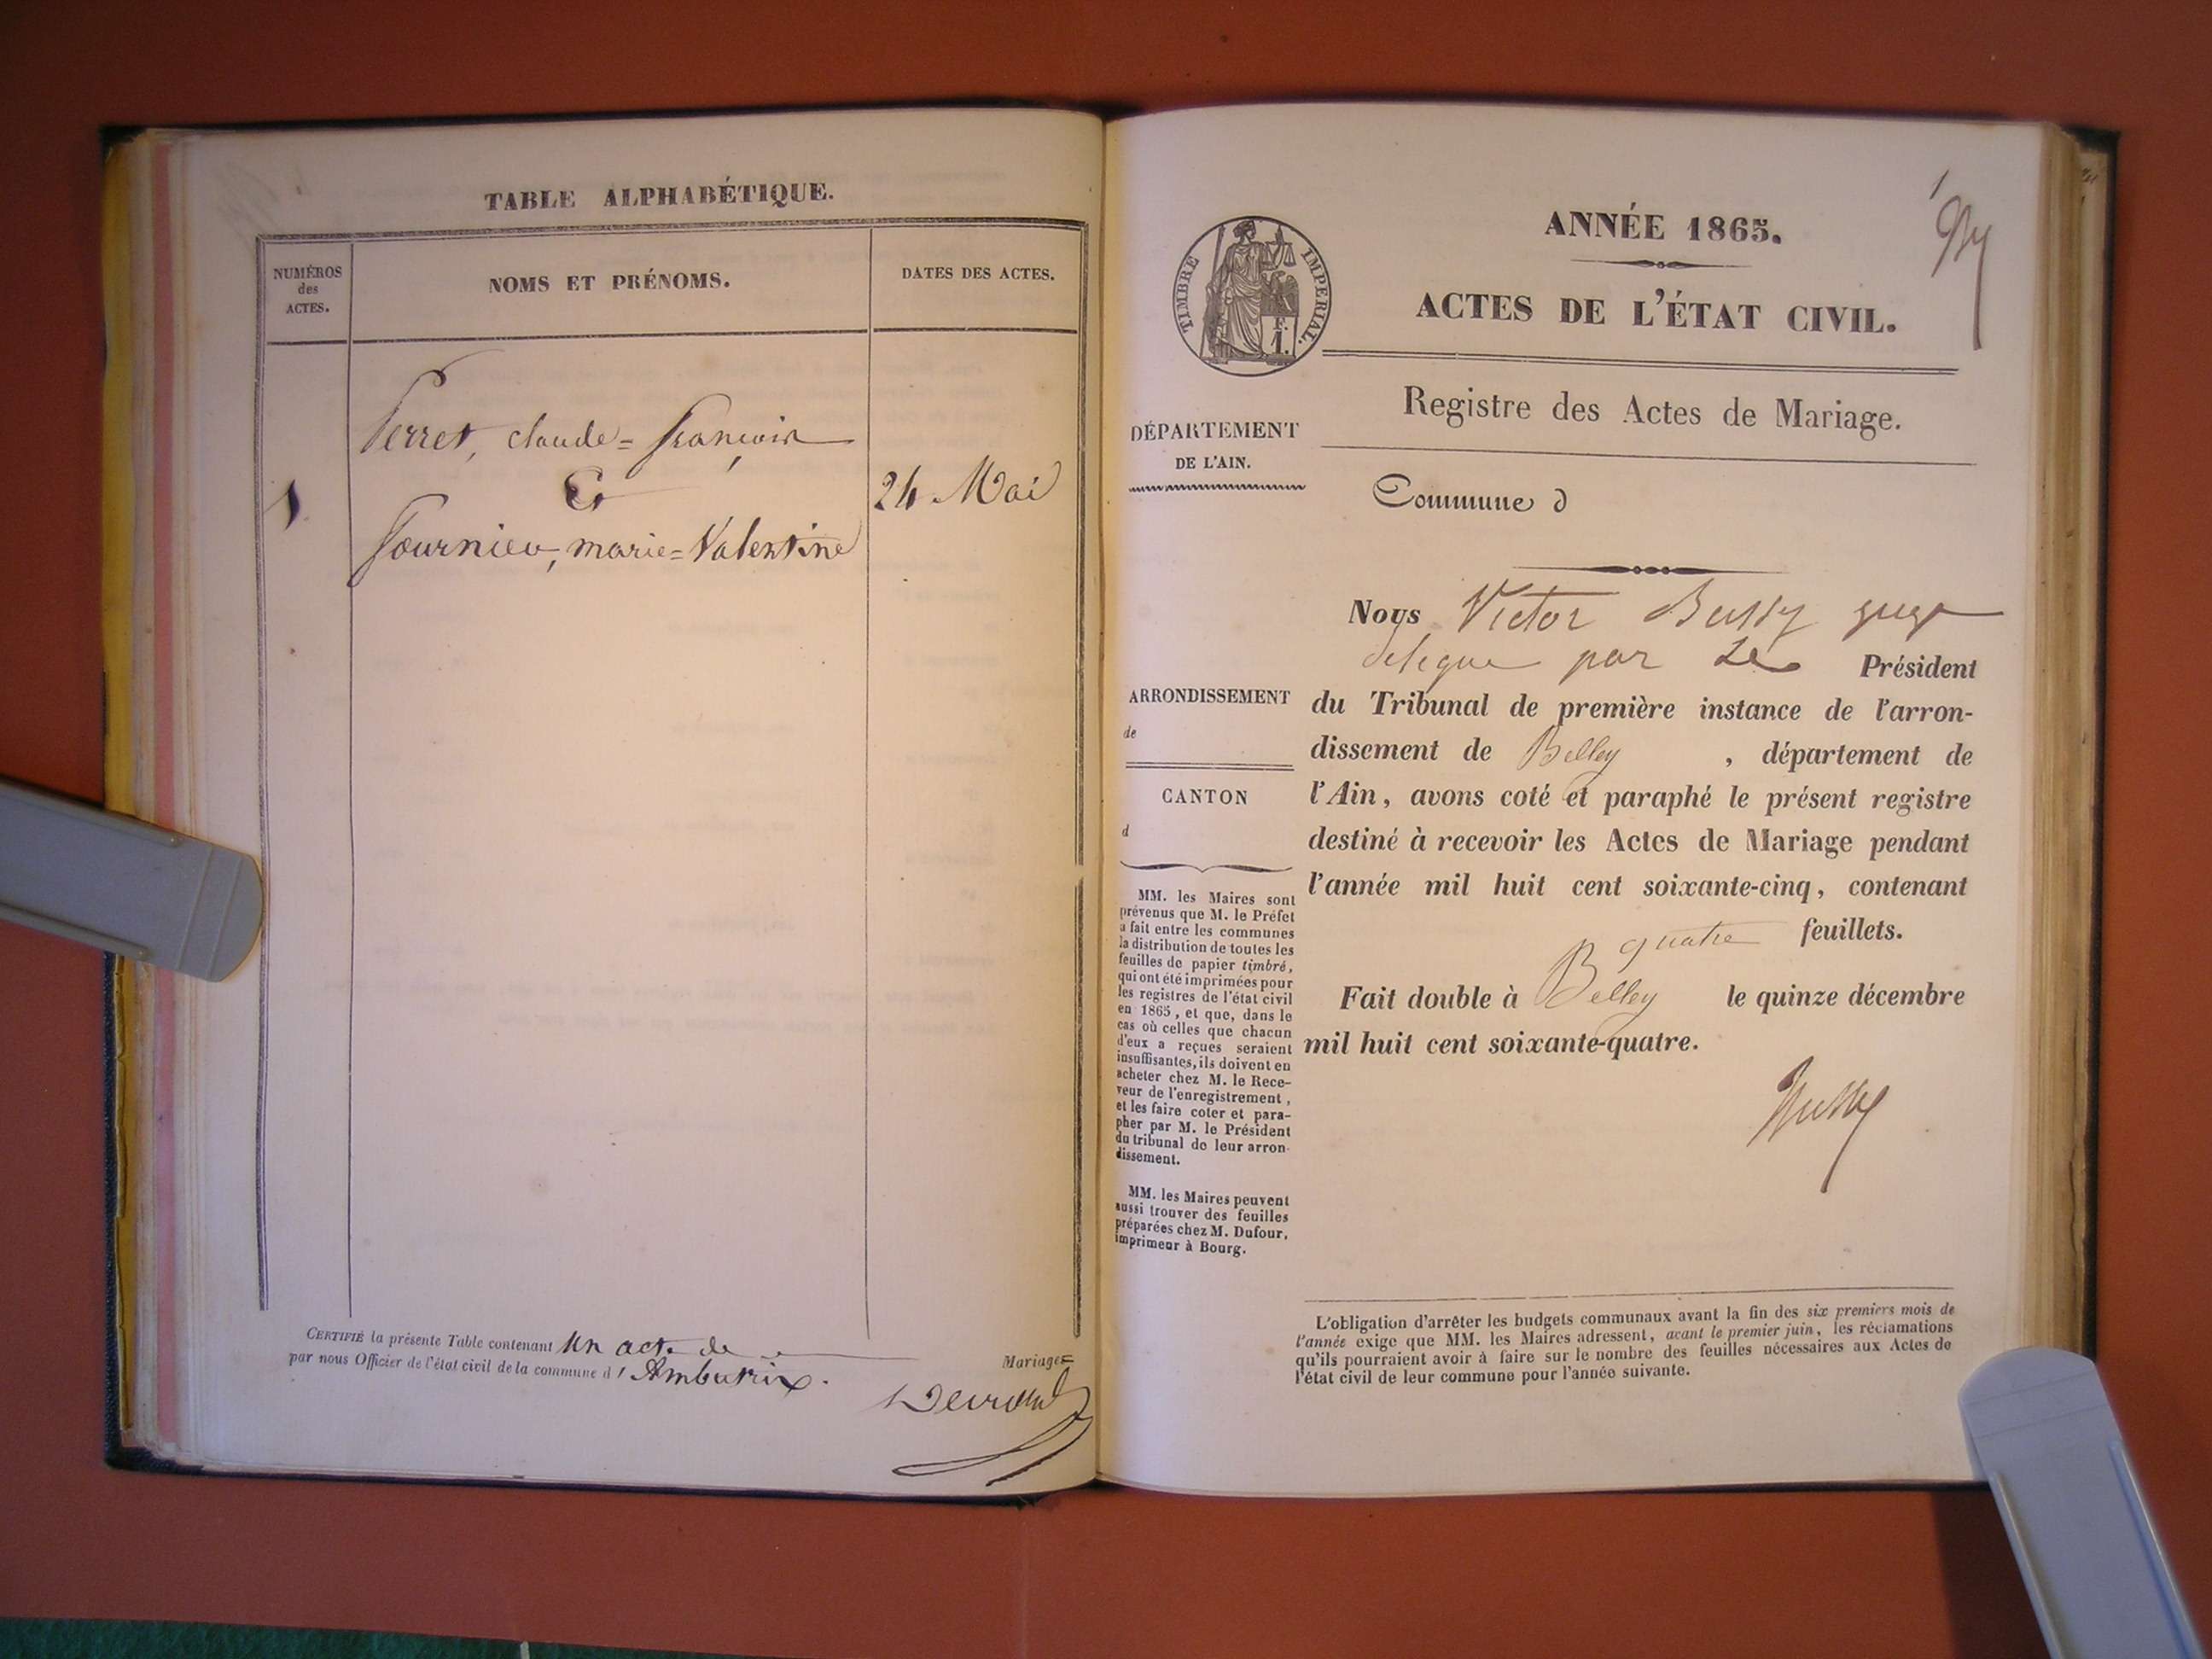 TABLE ALPHABÉTIQUE.
NUMÉROS
des
ACTES.
NOMS ET PRÉNOMS.
DATES DES ACTES.
Perret, claude=françois
1
Et
24 Mai
fournier, marie=Valentine
CERTIFIÉ la présente Table contenant un acte de
Mariage
par nous Officier de l'état civil de la commune d'Ambutrix.
1
ANNÉE 1865.
TIMBRE IMPERIAL.
F.
1.
ACTES DE L'ÉTAT CIVIL.
Registre des Actes de Mariage.
DÉPARTEMENT
DE L'AIN.
Commune d
ARRONDISSEMENT
de
CANTON
d
MM. les Maires sont
prévenus que M. le Préfet
a fait entre les communes
la distribution de toutes les
feuilles de papier timbré,
qui ont été imprimées pour
les registres de l'état civil
en 1865, et que, dans le
cas où celles que chacun
d'eux a reçues seraient
insuffisantes, ils doivent en
acheter chez M. le Rece-
veur de l'enregistrement,
et les faire coter et para-
pher par M. le Président
du tribunal de leur arron-
dissement.
MM. les Maires peuvent
aussi trouver des feuilles
préparées chez M. Dufour,
imprimeur à Bourg.
Nous Victor Bussy juge
delegue par Le Président
du Tribunal de première instance de l'arron-
dissement de Belley, département de
l'Ain, avons coté et paraphé le présent registre
destiné à recevoir les Actes de Mariage pendant
l'année mil huit cent soixante-cinq, contenant
quatre feuillets.
Fait double à Belley le quinze décembre
mil huit cent soixante-quatre.
Bussy
L'obligation d'arrêter les budgets communaux avant la fin des six premiers mois de
l'année exige que MM. les Maires adressent, avant le premier juin, les réclamations
qu'ils pourraient avoir à faire sur le nombre des feuilles nécessaires aux Actes de
l'état civil de leur commune pour l'année suivante.